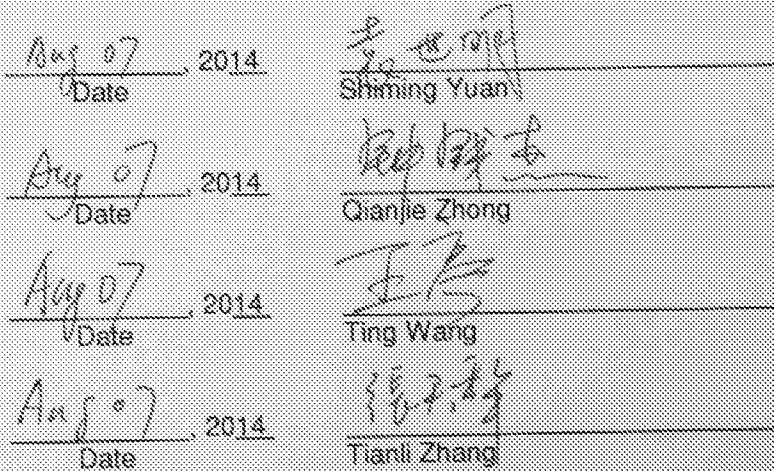 Aug 07, 2014
Date
袁世明
Shiming Yuan
Aug 07, 2014
Date
Qianjie Zhong
Aug 07, 2014
Date
王
Ting Wang
Aug 07, 2014
Date
张
Tianli Zhang